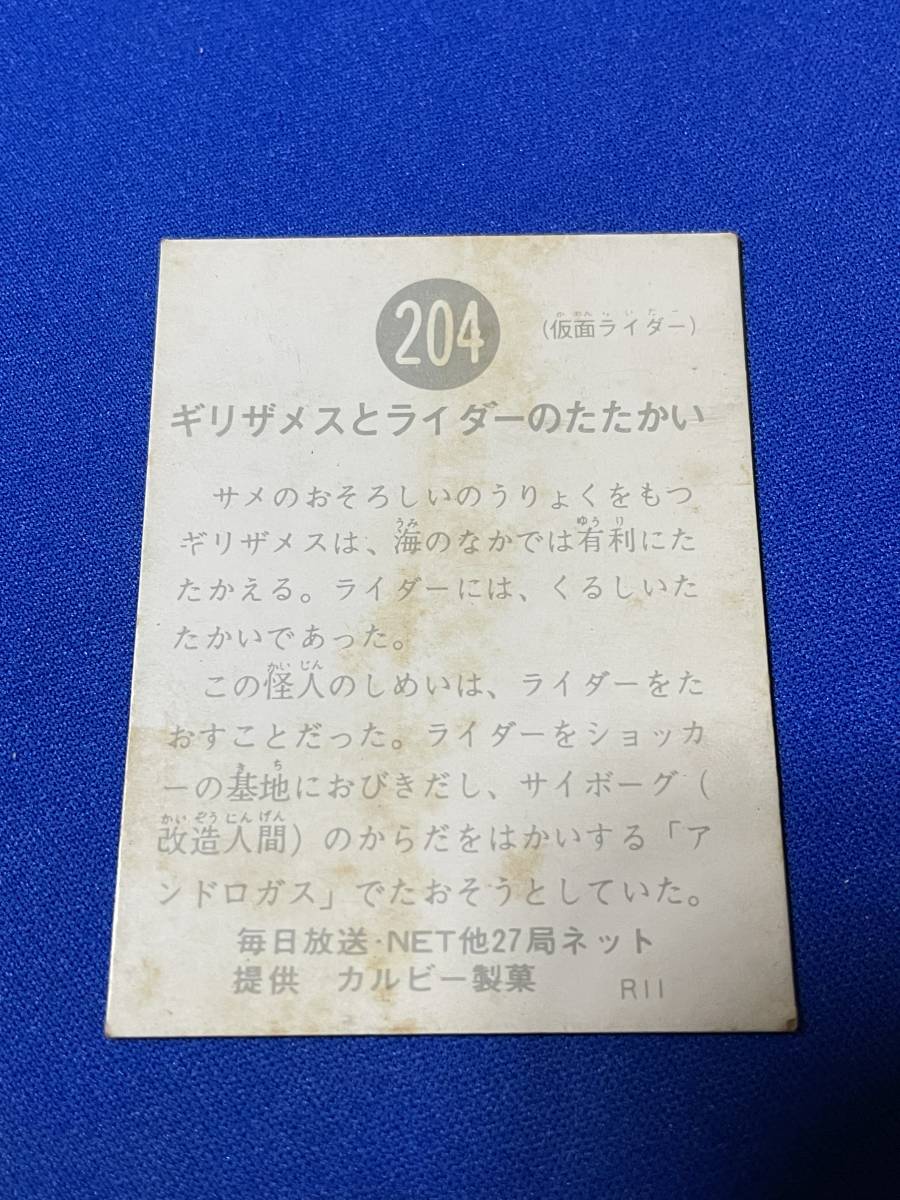 204
(仮面ライダー)
ギリザメスとライダーのたたかい
サメのおそろしいのうりょくをもつ
ギリザメスは、海のなかでは有利にた
たかえる。ライダーには、くるしいた
たかいであった。
この怪人のしめいは、ライダーをた
おすことだった。ライダーをショッカ
ーの基地におびきだし、サイボーグ(
改造人間)のからだをはかいする「ア
ンドロガス」でたおそうとしていた。
毎日放送・NET他27局ネット
提供 カルビー製菓
R11